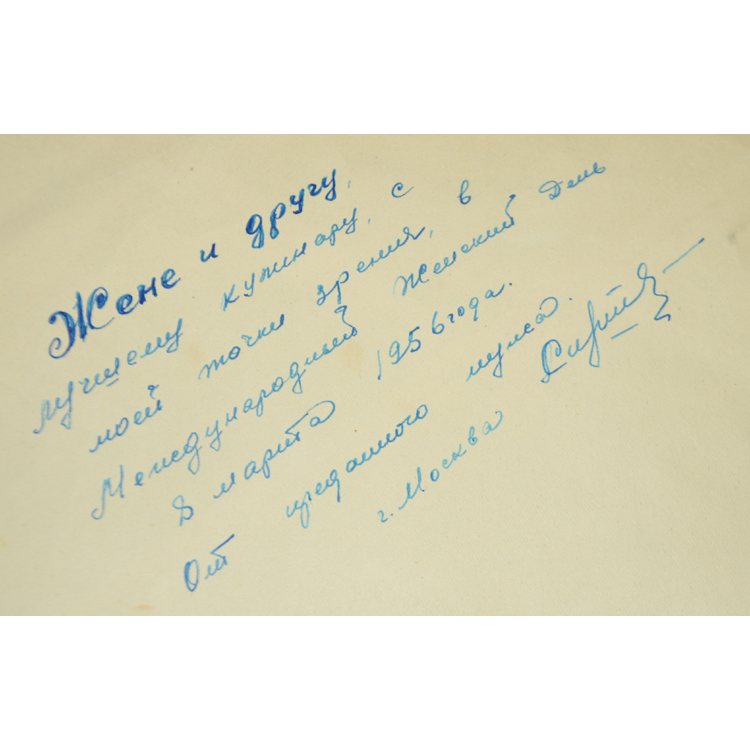 Жене и другу,
лучшему кулинару, с
моей точки зрения, в
Международный Женский День
8 марта 1956 года.
От преданного мужа.
г. Москва